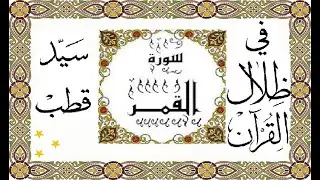 في
ظِلَال
القُرْآن
سُورَة
القمر
سَيّد
قطب